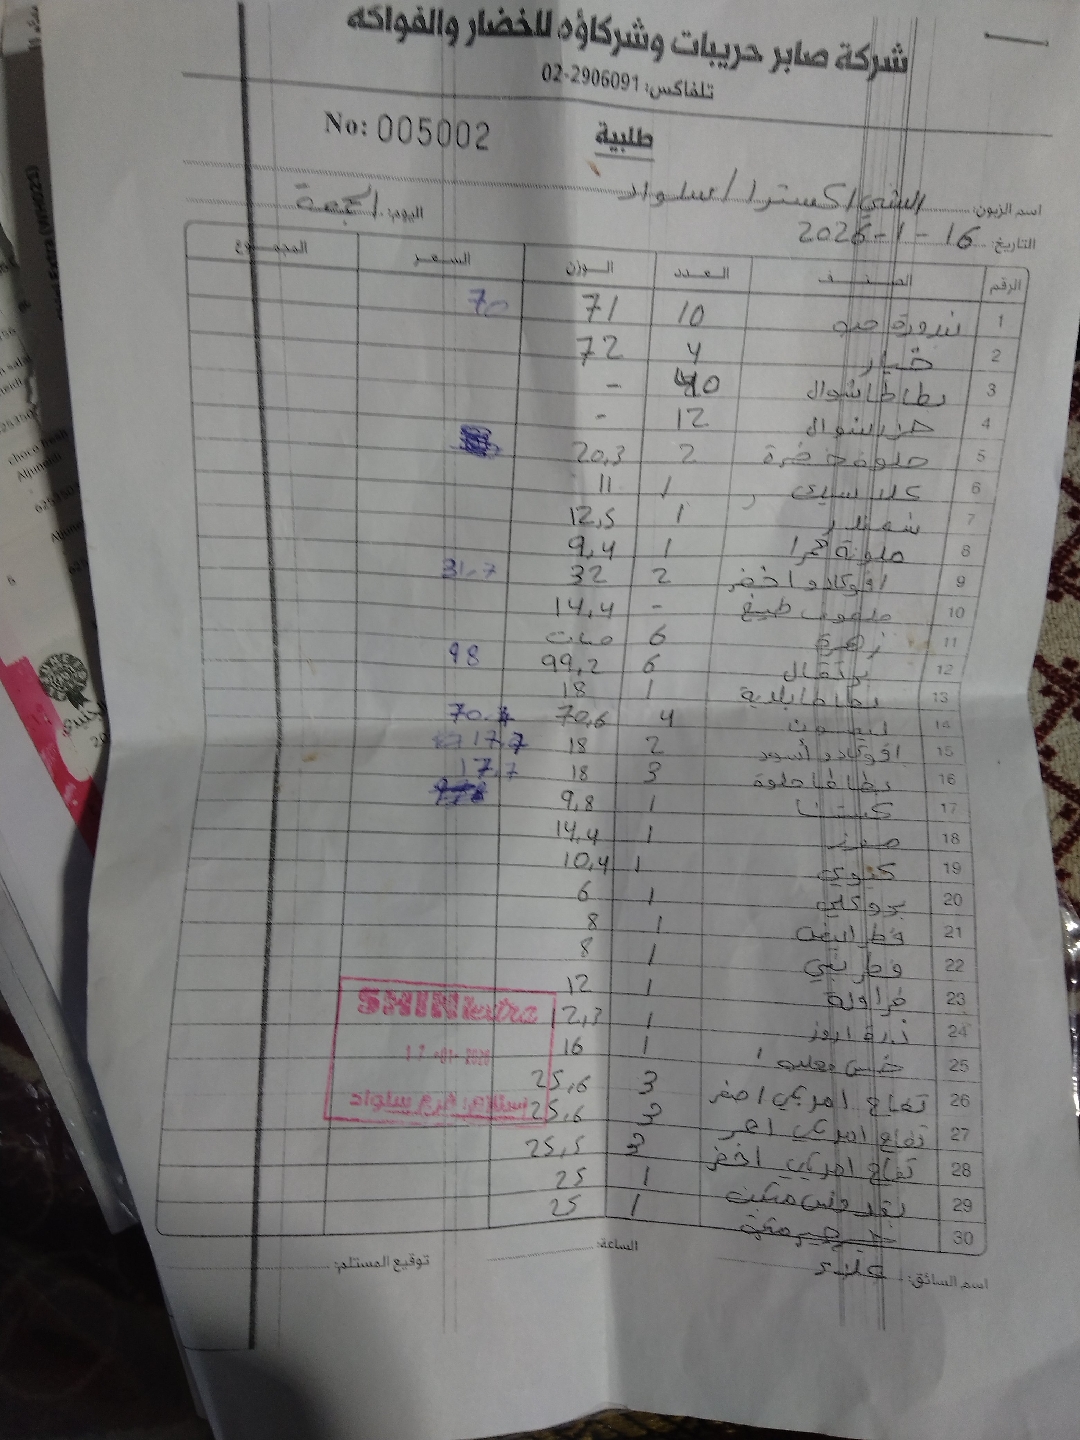 شركة صابر حريبات وشركاؤه للخضار والفواكه
تلفاكس: 02-2906091
طلبية
No: 005002
اسم الزبون: الشني اكسترا / سلواد
اليوم: الجمعة
التاريخ: 16-1-2026
الرقم الصنف العدد الوزن السعر المجموع
1 بندورة حبو 10 71 70
2 خيار 4 72
3 بطاطا شوال 40 -
4 جزر شوال 12 -
5 حلوة خضرة 2 20,3
6 كلاسيك 1 11
7 شمندر 1 12,5
8 ملونة حمرا 1 9,4
9 افوكادو اخضر 2 32 31.7
10 ملفوف طبيخ - 14,4
11 زهرة 6 حبات
12 برتقال 6 99,2 98
13 بطاطا بلدية 1 18
14 ليمون 4 70,6 70.4
15 افوكادو أسود 2 18 17.7
16 بطاطا حلوة 3 18 17.7
17 كستنا 1 9,8
18 1 14,4
19 كيوي 1 10,4
20 بروكلي 1 6
21 فطر ابيض 1 8
22 فطر بني 1 8
23 فراولة 1 12
24 ذرة 1 2,3
25 خس 1 16
26 تفاح امريكي اصفر 3 25,6
27 تفاح امريكي احمر 3 25,6
28 تفاح امريكي اخضر 3 25,5
29 1 25
30 1 25
SHINI extra
17-01-2026
استلام: فرع سلواد
اسم السائق: علاء
الساعة:
توقيع المستلم:
choco fresh
Aljuneidi